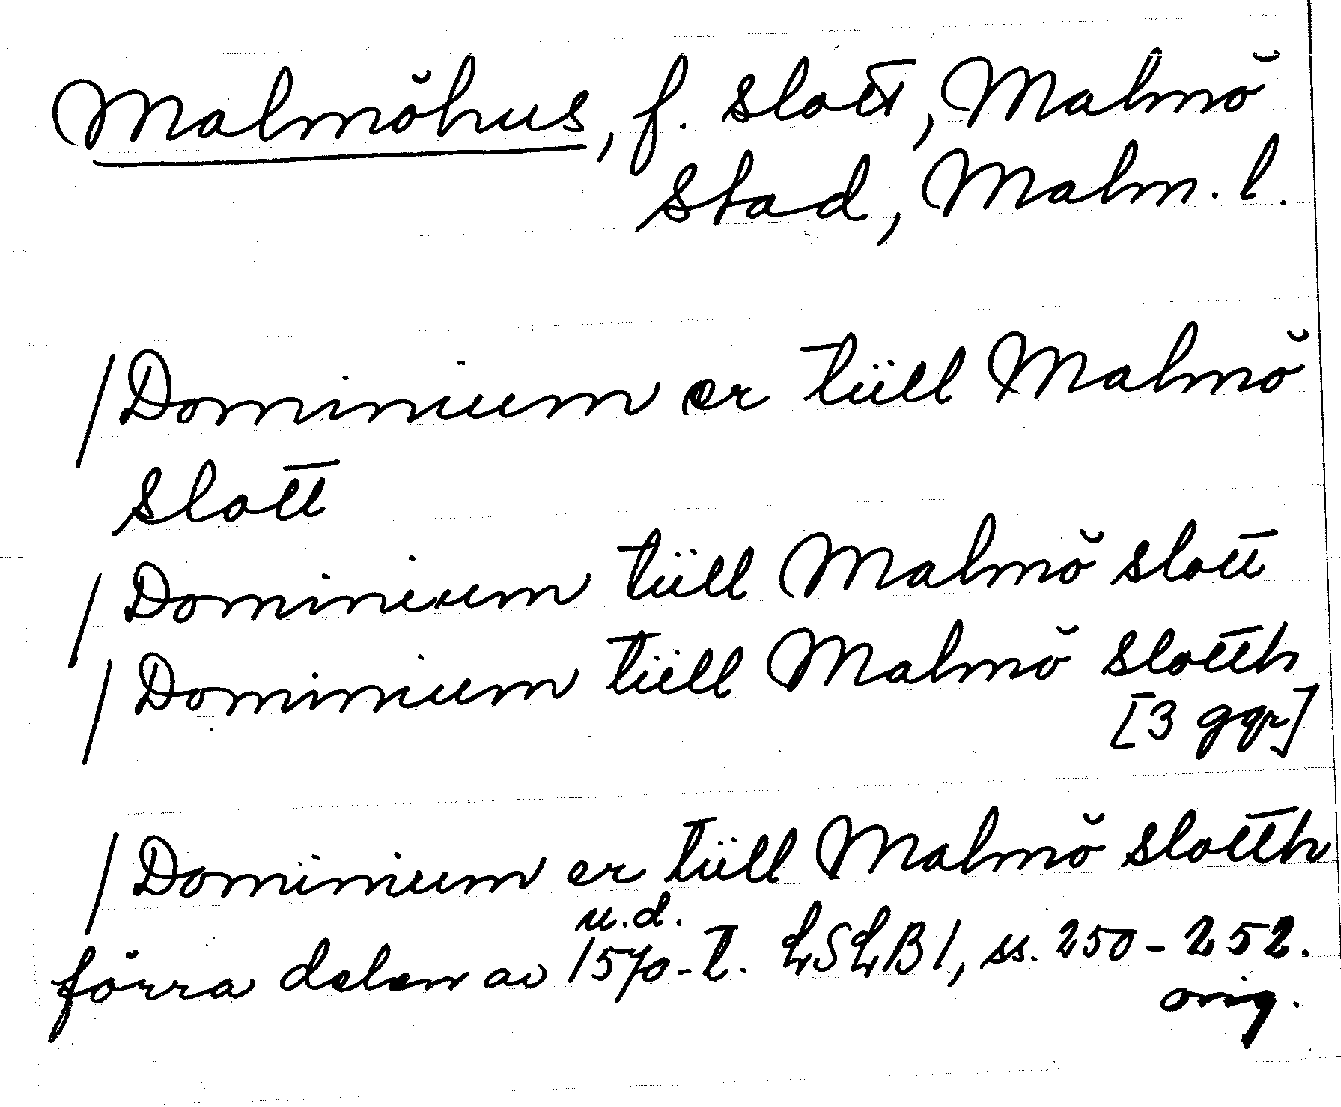 Malmöhus, f. slott, Malmö
stad, Malm. l.
/Dominium er tüll Malmö
slott
/Dominium tüll Malmö slott
/Dominium tüll Malmö slotth
[3 ggr]
/Dominium er tüll Malmö slotth
u.d.
förra delen av 1570-t. LSLB 1, ss. 250-252.
orig.